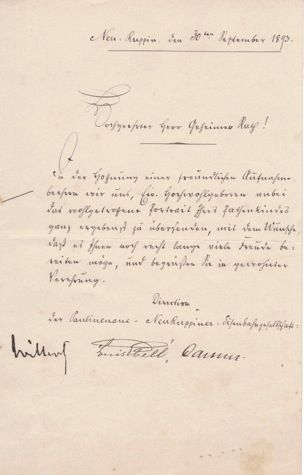 Neu-Ruppin, den 30ten September 1893.
Hochgeehrter Herr Geheimer Rath!
In der Hoffnung einer freundlichen Aufnahme
beehren wir uns, Ew. Hochwohlgeboren anbei
das wohlgetroffene Portrait Ihres Pathenkindes
ganz ergebenst zu übersenden, mit dem Wunsche,
daß es Ihnen noch recht lange viele Freude be-
reiten möge, und begrüßen Sie in gewohnter
Verehrung.
Direction
der Paulinenaue-Neuruppiner-Eisenbahngesellschaft: